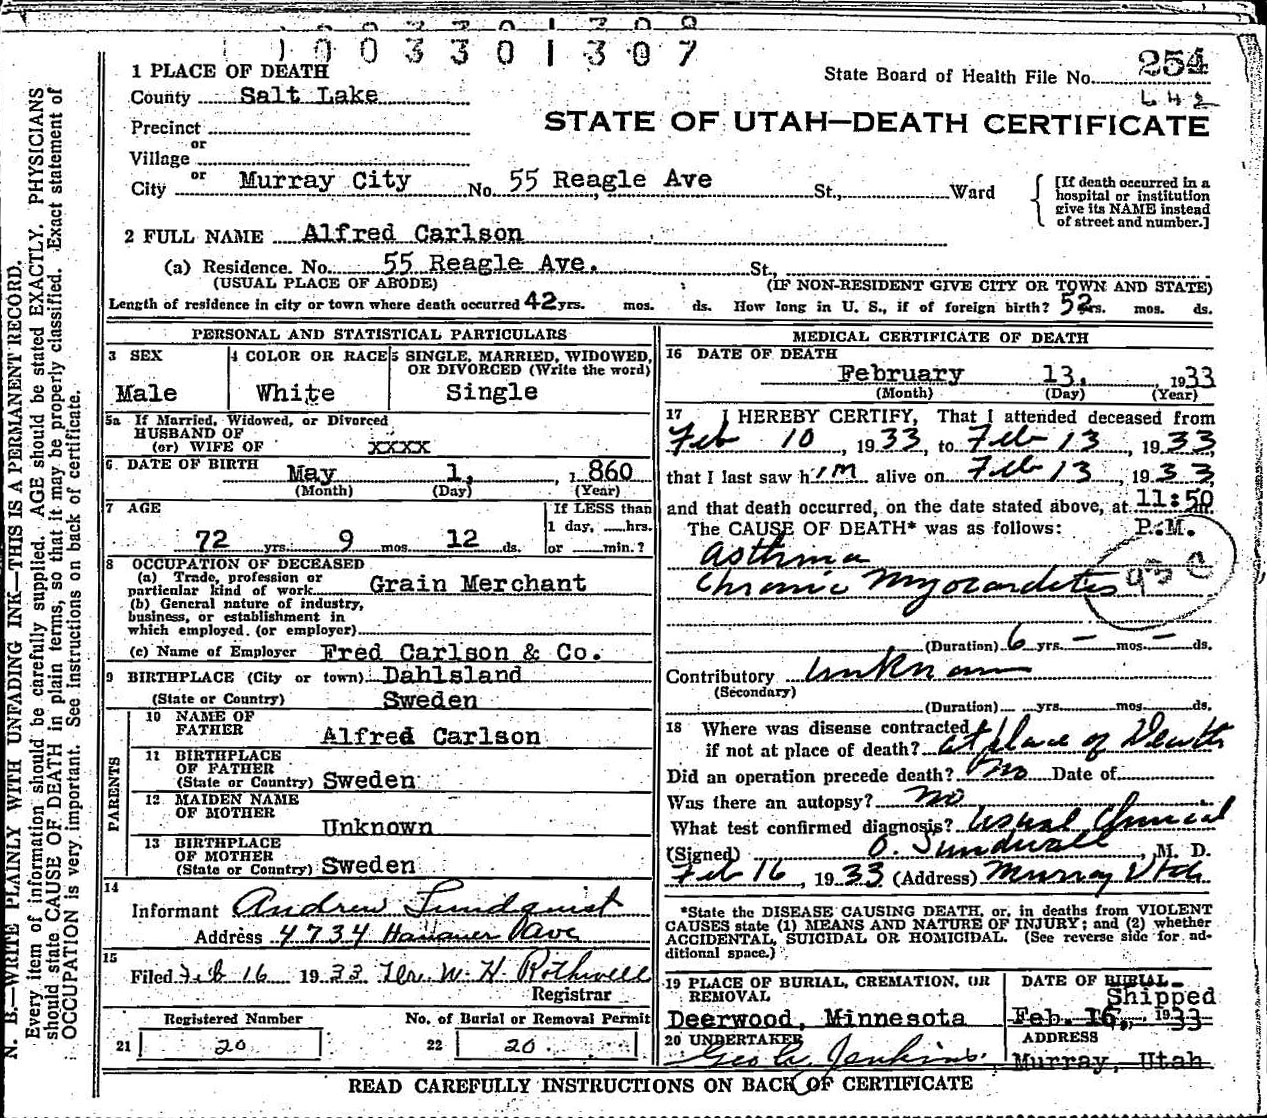 1003301307
1 PLACE OF DEATH
State Board of Health File No. 254
County Salt Lake
642
Precinct
STATE OF UTAH—DEATH CERTIFICATE
or
Village
or
City Murray City No. 55 Reagle Ave St., Ward
[If death occurred in a hospital or institution give its NAME instead of street and number.]
2 FULL NAME Alfred Carlson
(a) Residence. No. 55 Reagle Ave. St.,
(USUAL PLACE OF ABODE) (IF NON-RESIDENT GIVE CITY OR TOWN AND STATE)
Length of residence in city or town where death occurred 42 yrs. mos. ds. How long in U. S., if of foreign birth? 52 rs. mos. ds.
PERSONAL AND STATISTICAL PARTICULARS
3 SEX
Male
4 COLOR OR RACE
White
5 SINGLE, MARRIED, WIDOWED, OR DIVORCED (Write the word)
Single
5a If Married, Widowed, or Divorced
HUSBAND OF
(or) WIFE OF XXXX
6 DATE OF BIRTH May 1, 1860
(Month) (Day) (Year)
7 AGE
72 yrs. 9 mos. 12 ds.
If LESS than
1 day, hrs.
or min.?
8 OCCUPATION OF DECEASED
(a) Trade, profession or
particular kind of work Grain Merchant
(b) General nature of industry,
business, or establishment in
which employed. (or employer)
(c) Name of Employer Fred Carlson & Co.
9 BIRTHPLACE (City or town) Dahlsland
(State or Country) Sweden
PARENTS
10 NAME OF
FATHER Alfred Carlson
11 BIRTHPLACE
OF FATHER
(State or Country) Sweden
12 MAIDEN NAME
OF MOTHER
Unknown
13 BIRTHPLACE
OF MOTHER
(State or Country) Sweden
14
Informant Andrew Lundquist
Address 4734 Hanauer
15
Filed Feb 16 1933 W. H. Rothwell
Registrar
Registered Number
21 20
No. of Burial or Removal Permit
22 20
MEDICAL CERTIFICATE OF DEATH
16 DATE OF DEATH
February 13, 1933
(Month) (Day) (Year)
17 I HEREBY CERTIFY, That I attended deceased from
Feb 10, 1933, to Feb 13, 1933,
that I last saw him alive on Feb 13, 1933
and that death occurred, on the date stated above, at 11:50 m.
The CAUSE OF DEATH* was as follows: P.M.
Asthma
Chronic Myocarditis
(Duration) 6 yrs. — mos. — ds.
Contributory Unknown
(Secondary)
(Duration) yrs. mos. ds.
18 Where was disease contracted
if not at place of death? at place of Death
Did an operation precede death? No Date of
Was there an autopsy? No
What test confirmed diagnosis? Usual Clinical
(Signed) O. Sundwall, M. D.
Feb 16, 1933 (Address) Murray Utah
*State the DISEASE CAUSING DEATH, or, in deaths from VIOLENT
CAUSES state (1) MEANS AND NATURE OF INJURY; and (2) whether
ACCIDENTAL, SUICIDAL OR HOMICIDAL. (See reverse side for ad-
ditional space.)
19 PLACE OF BURIAL, CREMATION, OR
REMOVAL
Deerwood, Minnesota
DATE OF BURIAL
Shipped
Feb. 16, 1933
20 UNDERTAKER
Geo W. Jenkins.
ADDRESS
Murray, Utah
READ CAREFULLY INSTRUCTIONS ON BACK OF CERTIFICATE
N. B.—WRITE PLAINLY WITH UNFADING INK—THIS IS A PERMANENT RECORD.
Every item of information should be carefully supplied. AGE should be stated EXACTLY. PHYSICIANS
should state CAUSE OF DEATH in plain terms, so that it may be properly classified. Exact statement of
OCCUPATION is very important. See instructions on back of certificate.